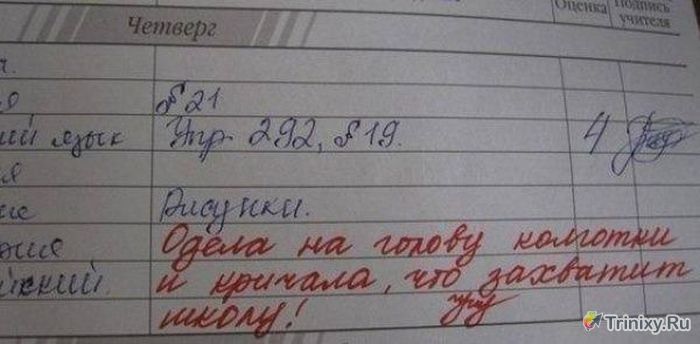 Оценка Подпись учителя
Четверг
§ 21
ий язык Упр 292, § 19. 4
Рисунки.
Одела на голову колготки
и кричала, что захватит
школу!
Trinixy.Ru